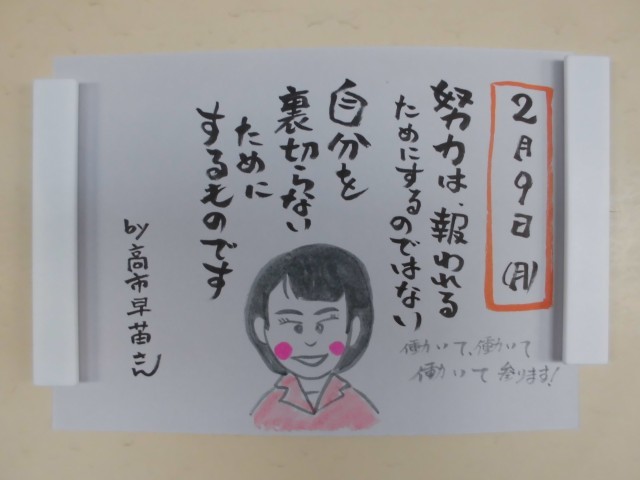 2月9日(月)
努力は、報われる
ためにするのではない
自分を
裏切らない
ために
するものです
by高市早苗さん
働いて、働いて
働いて参ります!